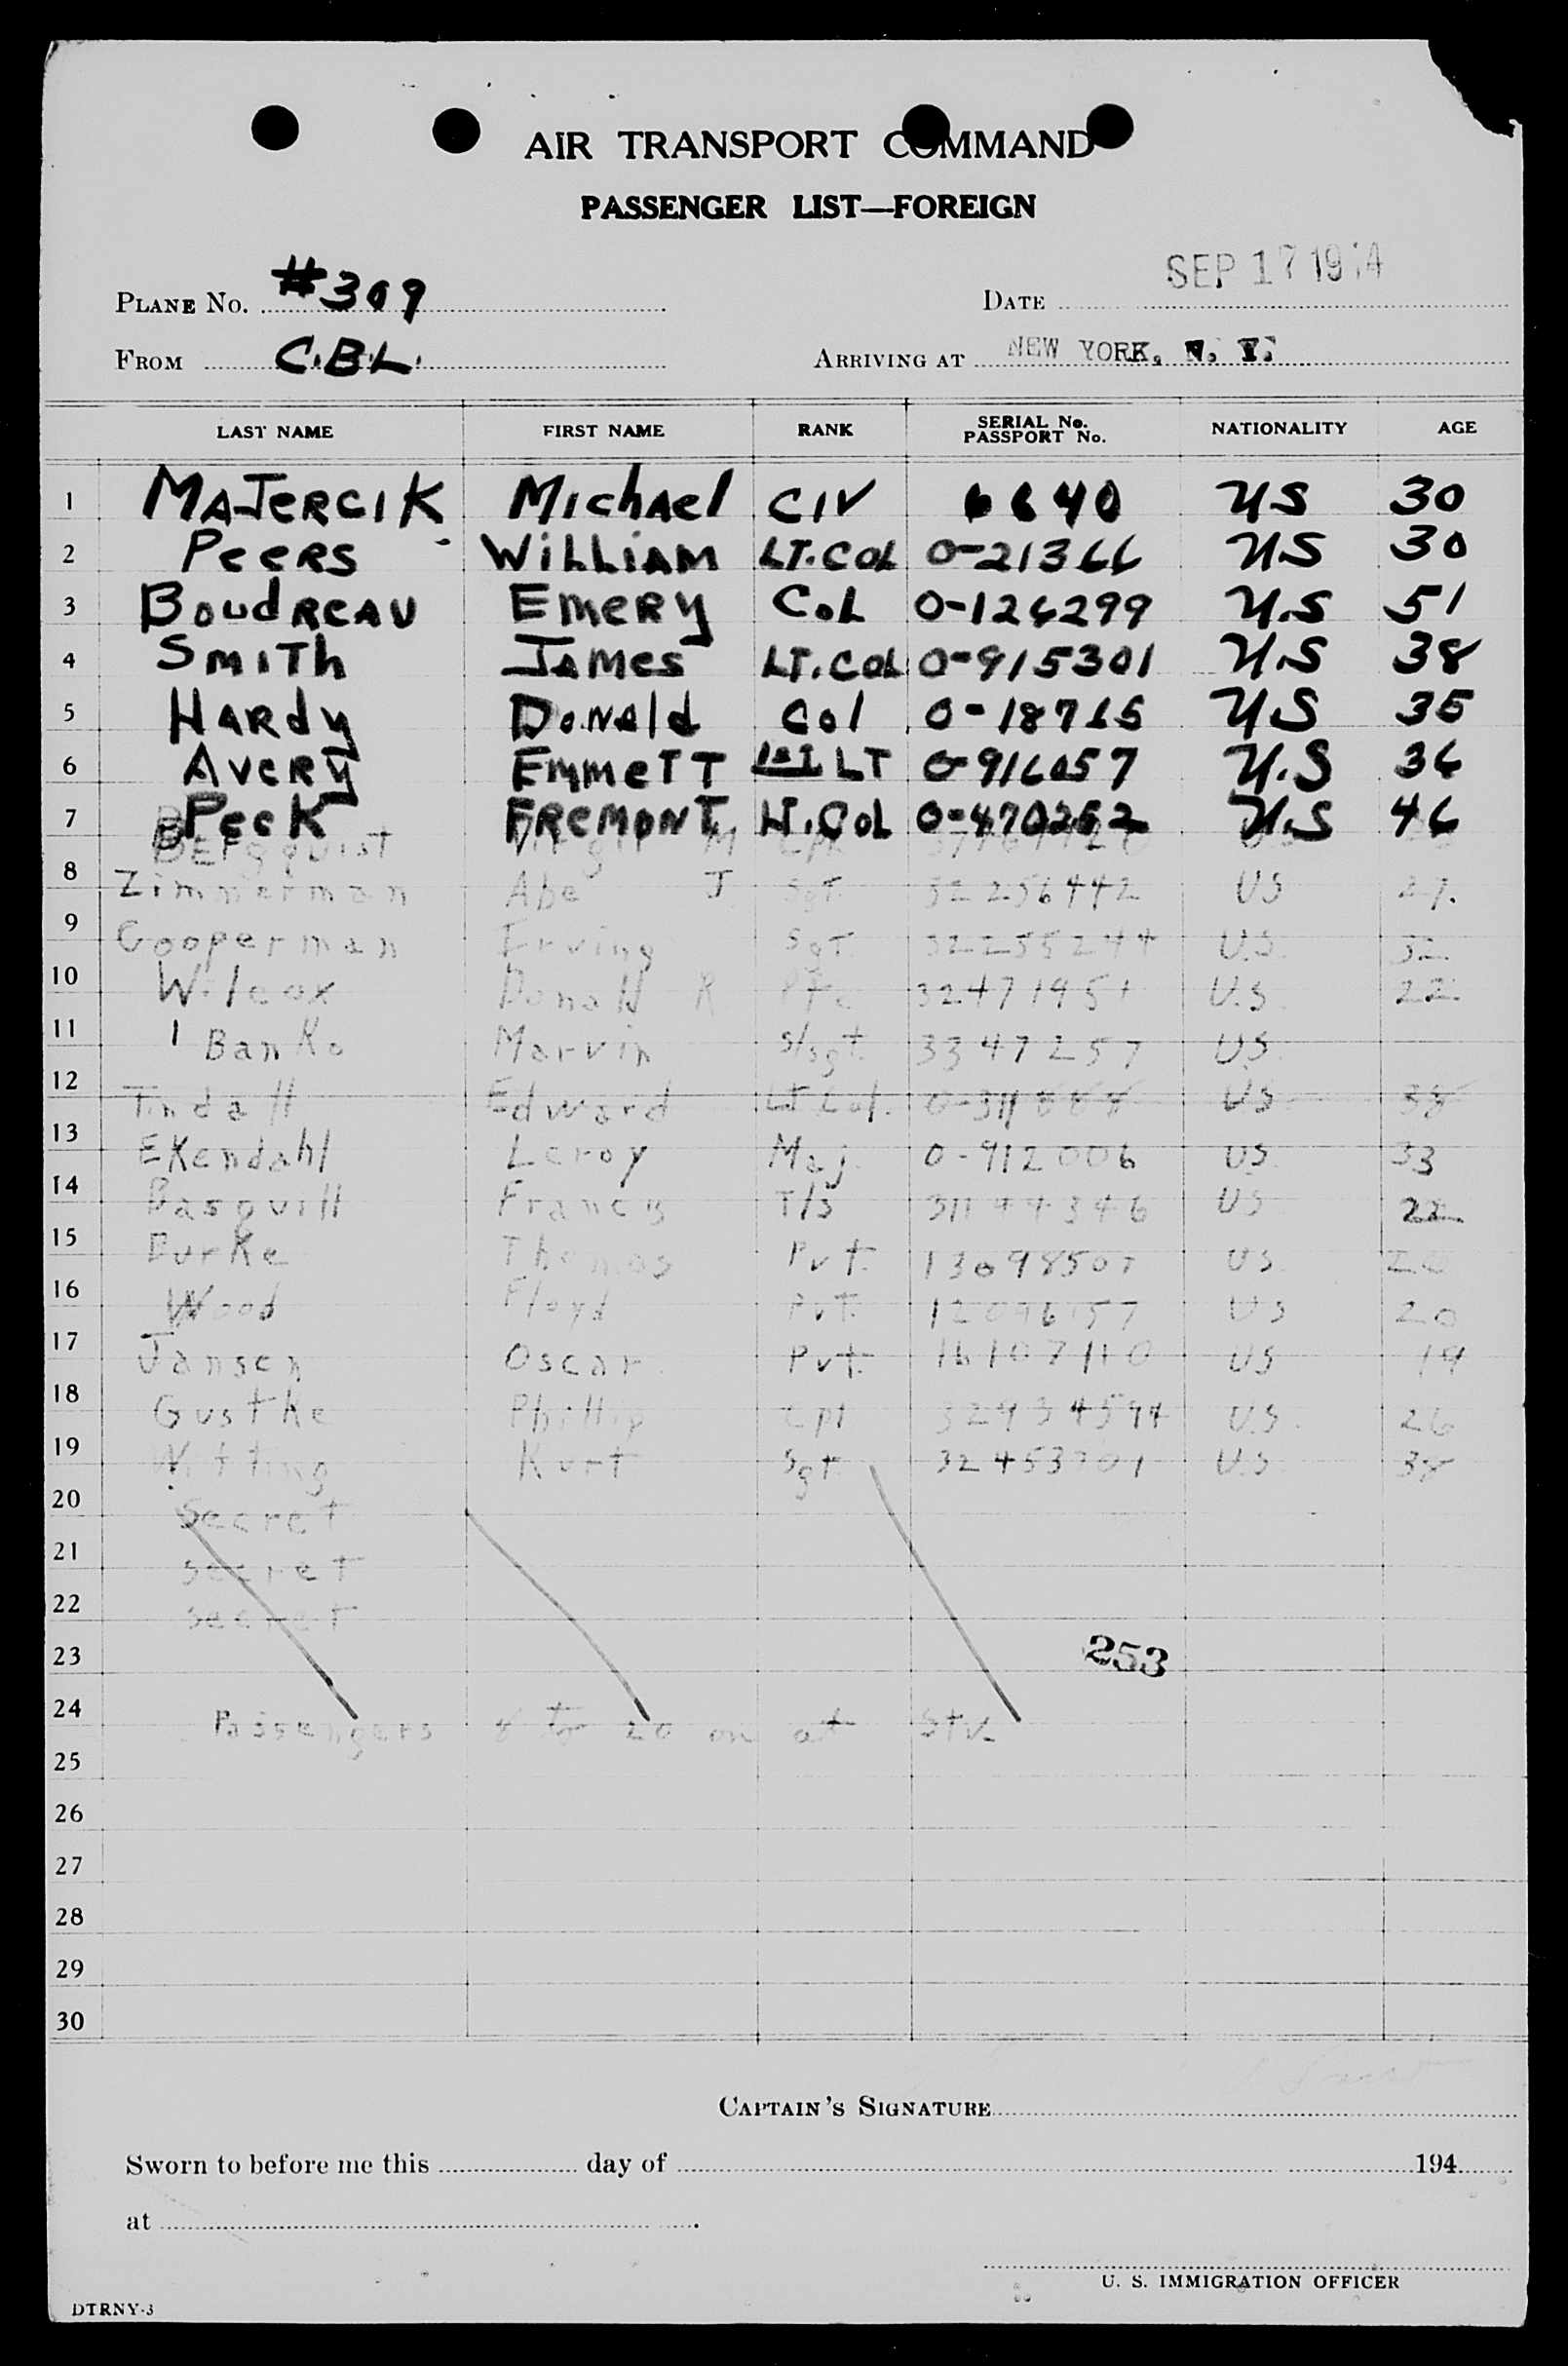 AIR TRANSPORT COMMAND
PASSENGER LIST—FOREIGN
PLANE NO. #309 DATE SEP 17 19
FROM C.B.L. ARRIVING AT NEW YORK, N. Y.
LAST NAME FIRST NAME RANK SERIAL No. PASSPORT No. NATIONALITY AGE
1 MAJERCIK Michael CIV 6640 US 30
2 Peers William LT.Col 0-21366 US 30
3 Boudreau Emery Col 0-126299 U.S 51
4 Smith James LT.Col 0-915301 U.S 38
5 Hardy Donald Col 0-18765 US 35
6 Avery Emmett 1st LT 0-916057 U.S 36
7 Peck Fremont Lt.Col 0-470252 U.S 46
Bergquist M
8 Zimmerman Abe J Sgt. 32256442 US 27.
9 Cooperman Irving Sgt. 32255244 U.S. 32
10 Wilcox Donald R Pfc 32471951 U.S 22
11 Banko Marvin S/Sgt. 3347257 US
12 Tindall Edward Lt Col. 0-311888 US 38
13 Ekendahl Leroy Maj. 0-912006 US 33
14 Basquill Francis T/5 31144346 US 22
15 Burke Thomas Pvt. 13098507 US
16 Wood Floyd Pvt. US 20
17 Jansen Oscar Pvt. 16107110 US 19
18 Gustke Phillip Cpl U.S. 26
19 Witting Kurt Sgt. U.S 38
20 Secret
21 Secret
22 Secret
23 253
24 Passengers 8 to 20 on at
25
26
27
28
29
30
CAPTAIN'S SIGNATURE
Sworn to before me this day of 194
at
U. S. IMMIGRATION OFFICER
DTRNY-3